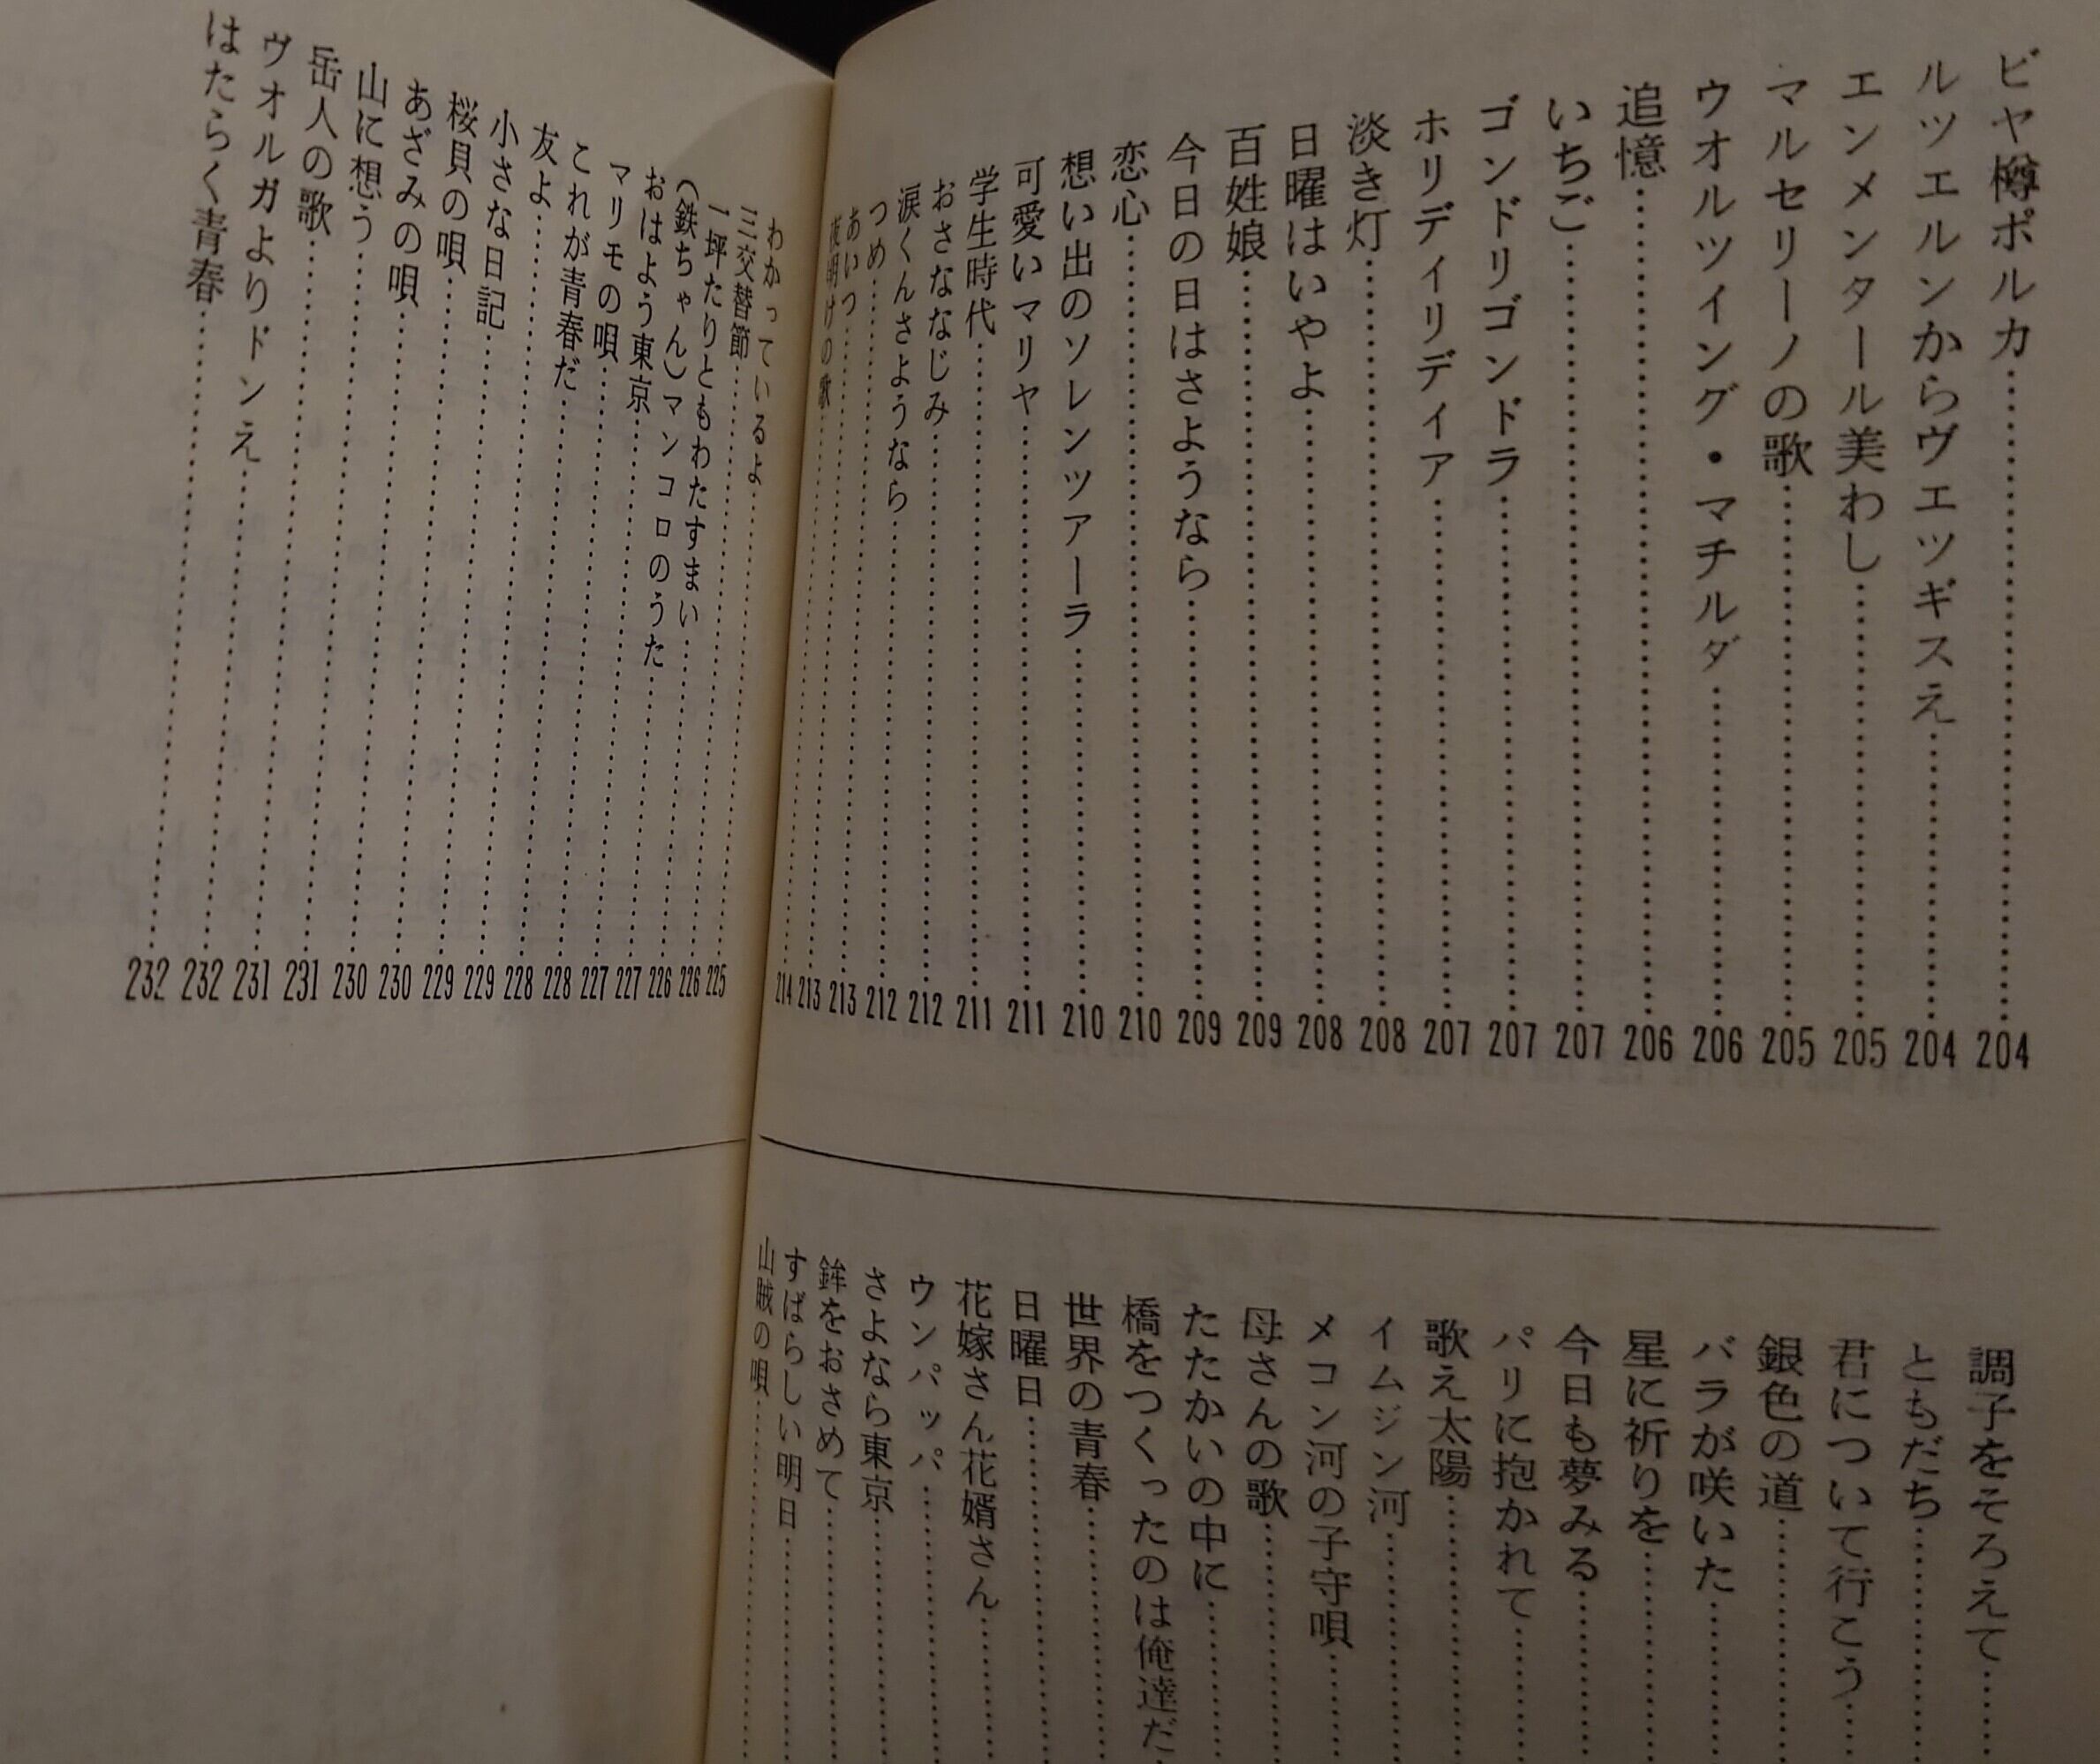 ビヤ樽ポルカ…………204
ルツエルンからヴエツギスえ…………204
エンメンタール美わし…………205
マルセリーノの歌…………205
ウオルツイング・マチルダ…………206
追憶…………206
いちご…………207
ゴンドリゴンドラ…………207
ホリディリディア…………207
淡き灯…………208
日曜はいやよ…………208
百姓娘…………209
今日の日はさようなら…………209
恋心…………210
想い出のソレンツアーラ…………210
可愛いマリヤ…………211
学生時代…………211
おさななじみ…………212
涙くんさようなら…………212
つめ…………213
あいつ…………213
夜明けの歌…………214
調子をそろえて…………
ともだち…………
君について行こう…………
銀色の道…………
バラが咲いた…………
星に祈りを…………
今日も夢みる…………
パリに抱かれて…………
歌え太陽…………
イムジン河…………
メコン河の子守唄…………
母さんの歌…………
たたかいの中に…………
橋をつくったのは俺達だ…………
世界の青春…………
日曜日…………
花嫁さん花婿さん…………
ウンパッパ…………
さよなら東京…………
鉾をおさめて…………
すばらしい明日…………
山賊の唄…………
わかっているよ…………225
三交替節…………226
一坪たりともわたすまい…………226
(鉄ちゃん)マンコロのうた…………227
おはよう東京…………227
マリモの唄…………228
これが青春だ…………228
友よ…………229
小さな日記…………229
桜貝の唄…………230
あざみの唄…………230
山に想う…………231
岳人の歌…………231
ヴオルガよりドンえ…………232
はたらく青春…………232